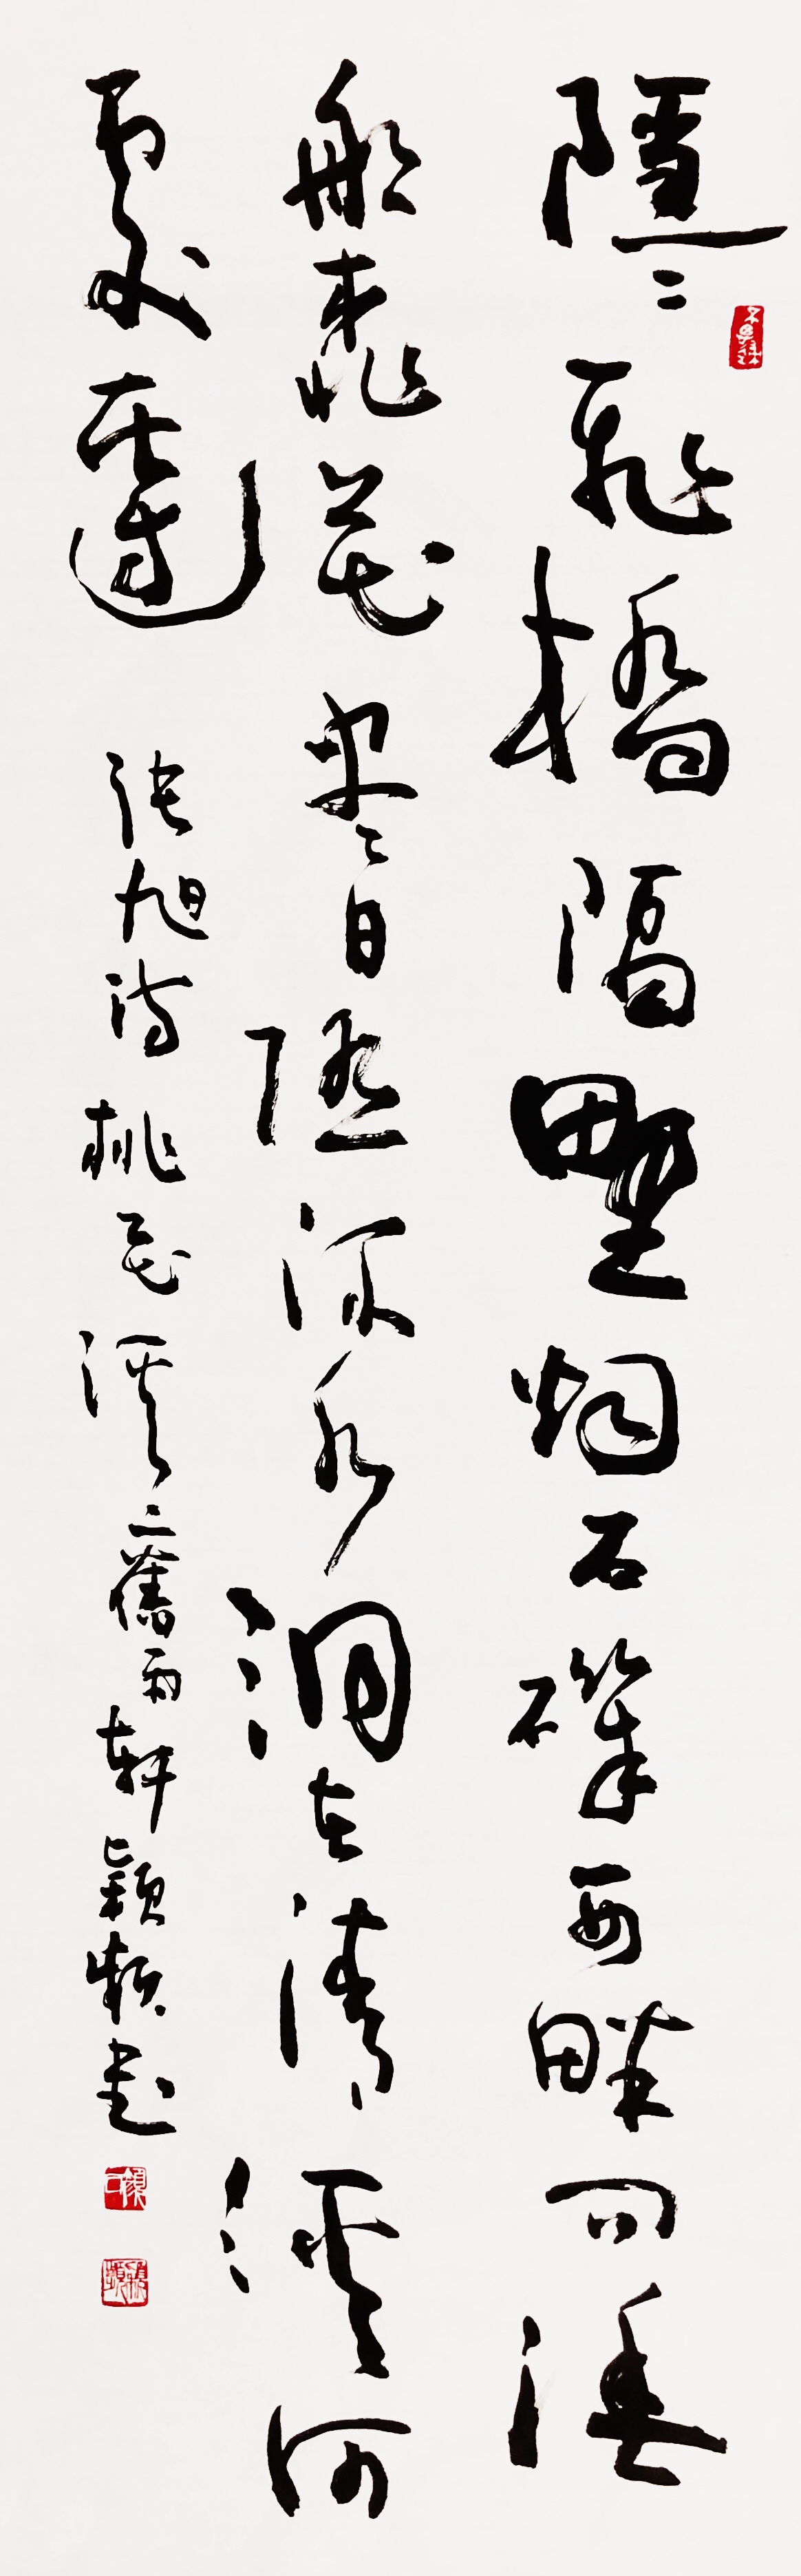 隱隱飛橋隔野烟石磯西畔问漁
船桃花盡日随流水洞在清溪何
處邊
張旭诗桃花溪舊雨軒穎頻書